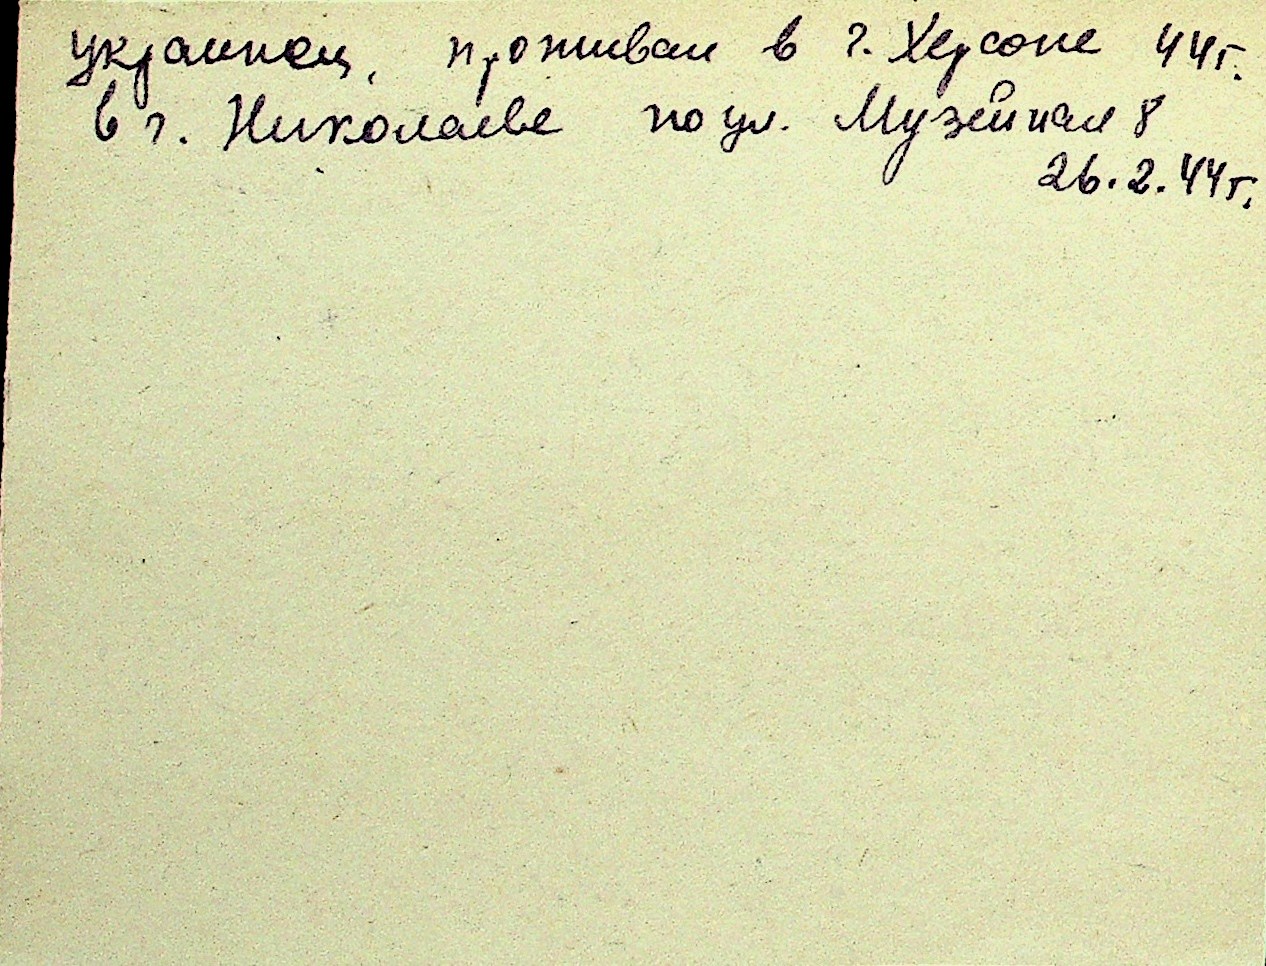 украинец, проживал в г. Херсоне 44г.
в г. Николаеве по ул. Музейная 8
26.2.44г.